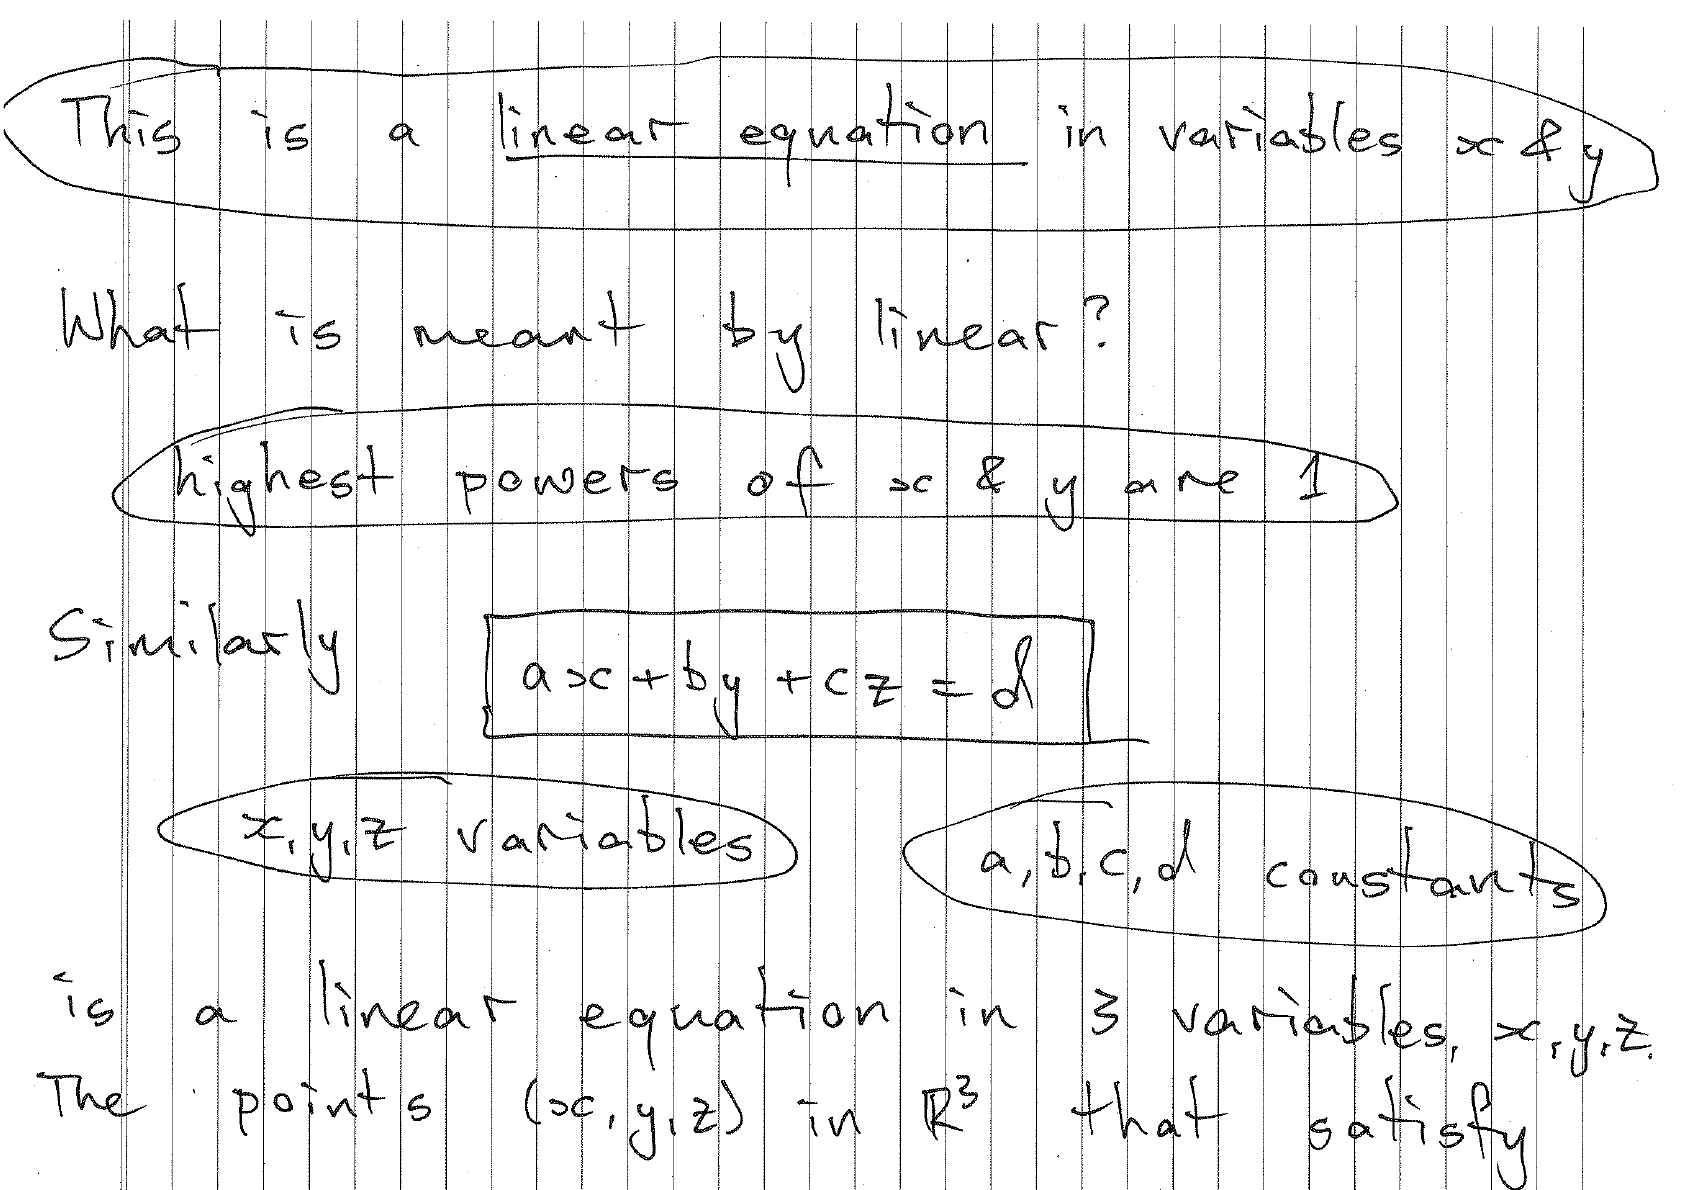 This is a linear equation in variables x & y
What is meant by linear?
highest powers of x & y are 1
Similarly ax + by + cz = d
x, y, z variables a, b, c, d constants
is a linear equation in 3 variables, x, y, z.
The points (x, y, z) in ℝ³ that satisfy